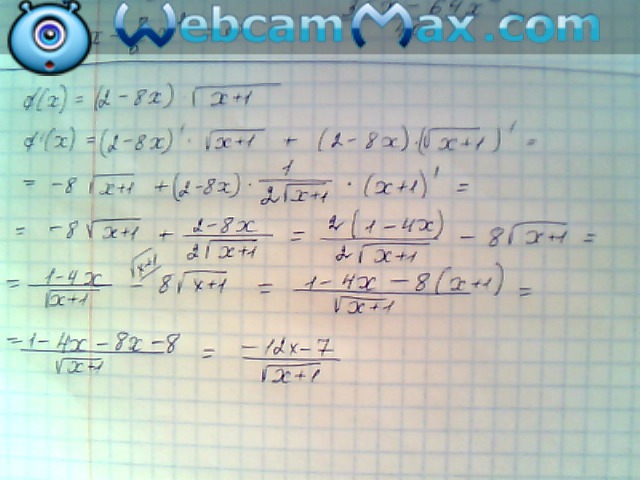 WebcamMax.com
f(x) = (2 - 8x) · √(x+1)
f'(x) = (2-8x)' · √(x+1) + (2-8x)·(√(x+1))' =
= -8√(x+1) + (2-8x) · 1/(2√(x+1)) · (x+1)' =
= -8√(x+1) + (2-8x)/(2√(x+1)) = 2(1-4x)/(2√(x+1)) - 8√(x+1) =
= (1-4x)/√(x+1) - 8√(x+1) √(x+1) = (1-4x-8(x+1))/√(x+1) =
= (1-4x-8x-8)/√(x+1) = (-12x-7)/√(x+1)